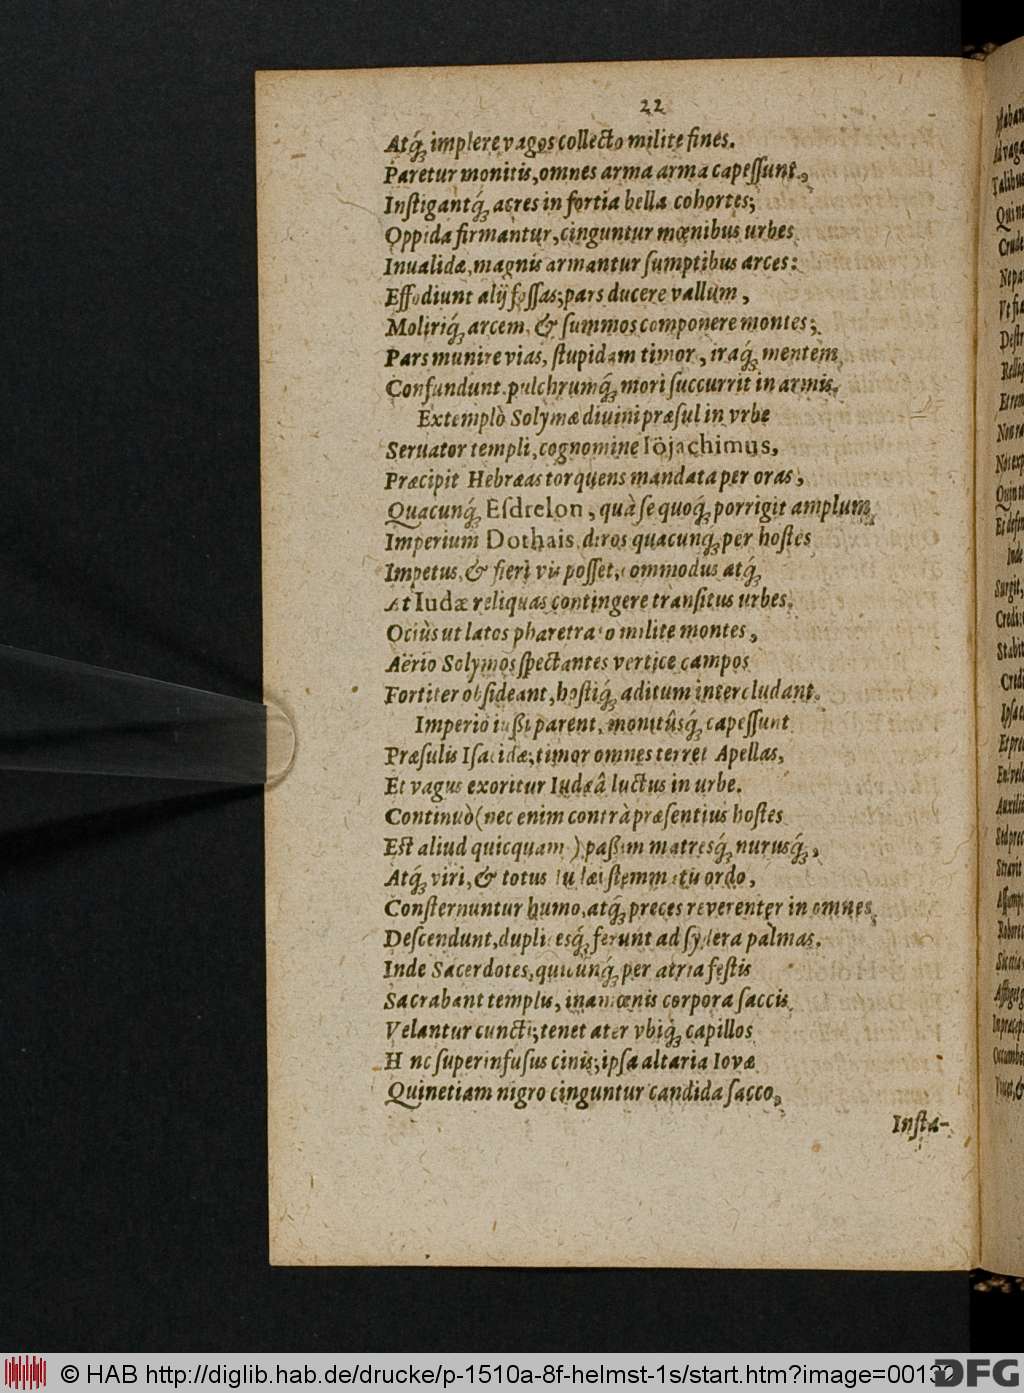 22
Atq́ꝫ implere vagos collecto milite fines.
Paretur monitis, omnes arma arma capeſſunt,
Inſtigantq́ꝫ acres in fortia bella cohortes;
Oppida firmantur, cinguntur mœnibus urbes
Inualidæ, magnis armantur ſumptibus arces:
Effodiunt alij foſſas; pars ducere vallum,
Moliriq́ꝫ arcem, & ſummos componere montes;
Pars munire vias, ſtupidam timor, iraq́ꝫ mentem
Confundunt, pulchrumq́ꝫ mori ſuccurrit in armis.
Extemplò Solymæ diuini præſul in vrbe
Seruator templi, cognomine Iojachimus,
Præcipit Hebræas torquens mandata per oras,
Quacunq́ꝫ Eſdrelon, quà ſe quoq́ꝫ porrigit amplum
Imperium Dothais, diros quacunq́ꝫ per hoſtes
Impetus, & fieri vis poſſet, commodus atq́ꝫ
At Iudæ reliquas contingere tranſitus urbes.
Ociùs ut latos pharetrato milite montes,
Aërio Solymos ſpectantes vertice campos
Fortiter obſideant, hoſtiq́ꝫ aditum intercludant.
Imperio iußi parent, monitûsq́ꝫ capeſſunt
Præſulis Iſacidæ; timor omnes terret Apellas,
Et vagus exoritur Iudæâ luctus in urbe.
Continuò (nec enim contrà præſentius hoſtes
Eſt aliud quicquam) paßim matresq́ꝫ nurusq́ꝫ,
Atq́ꝫ viri, & totus Iudæi ſtemmatis ordo,
Conſternuntur humo, atq́ꝫ preces reverenter in omnes
Deſcendunt, duplicesq́ꝫ ferunt ad ſydera palmas.
Inde Sacerdotes, quicunq́ꝫ per atria feſtis
Sacrabant templis, inamœnis corpora ſaccis
Velantur cuncti; tenet ater vbiq́ꝫ capillos
Hinc ſuperinfuſus cinis; ipſa altaria Iovæ
Quinetiam nigro cinguntur candida ſacco,
Inſta-
© HAB http://diglib.hab.de/drucke/p-1510a-8f-helmst-1s/start.htm?image=00132
DFG